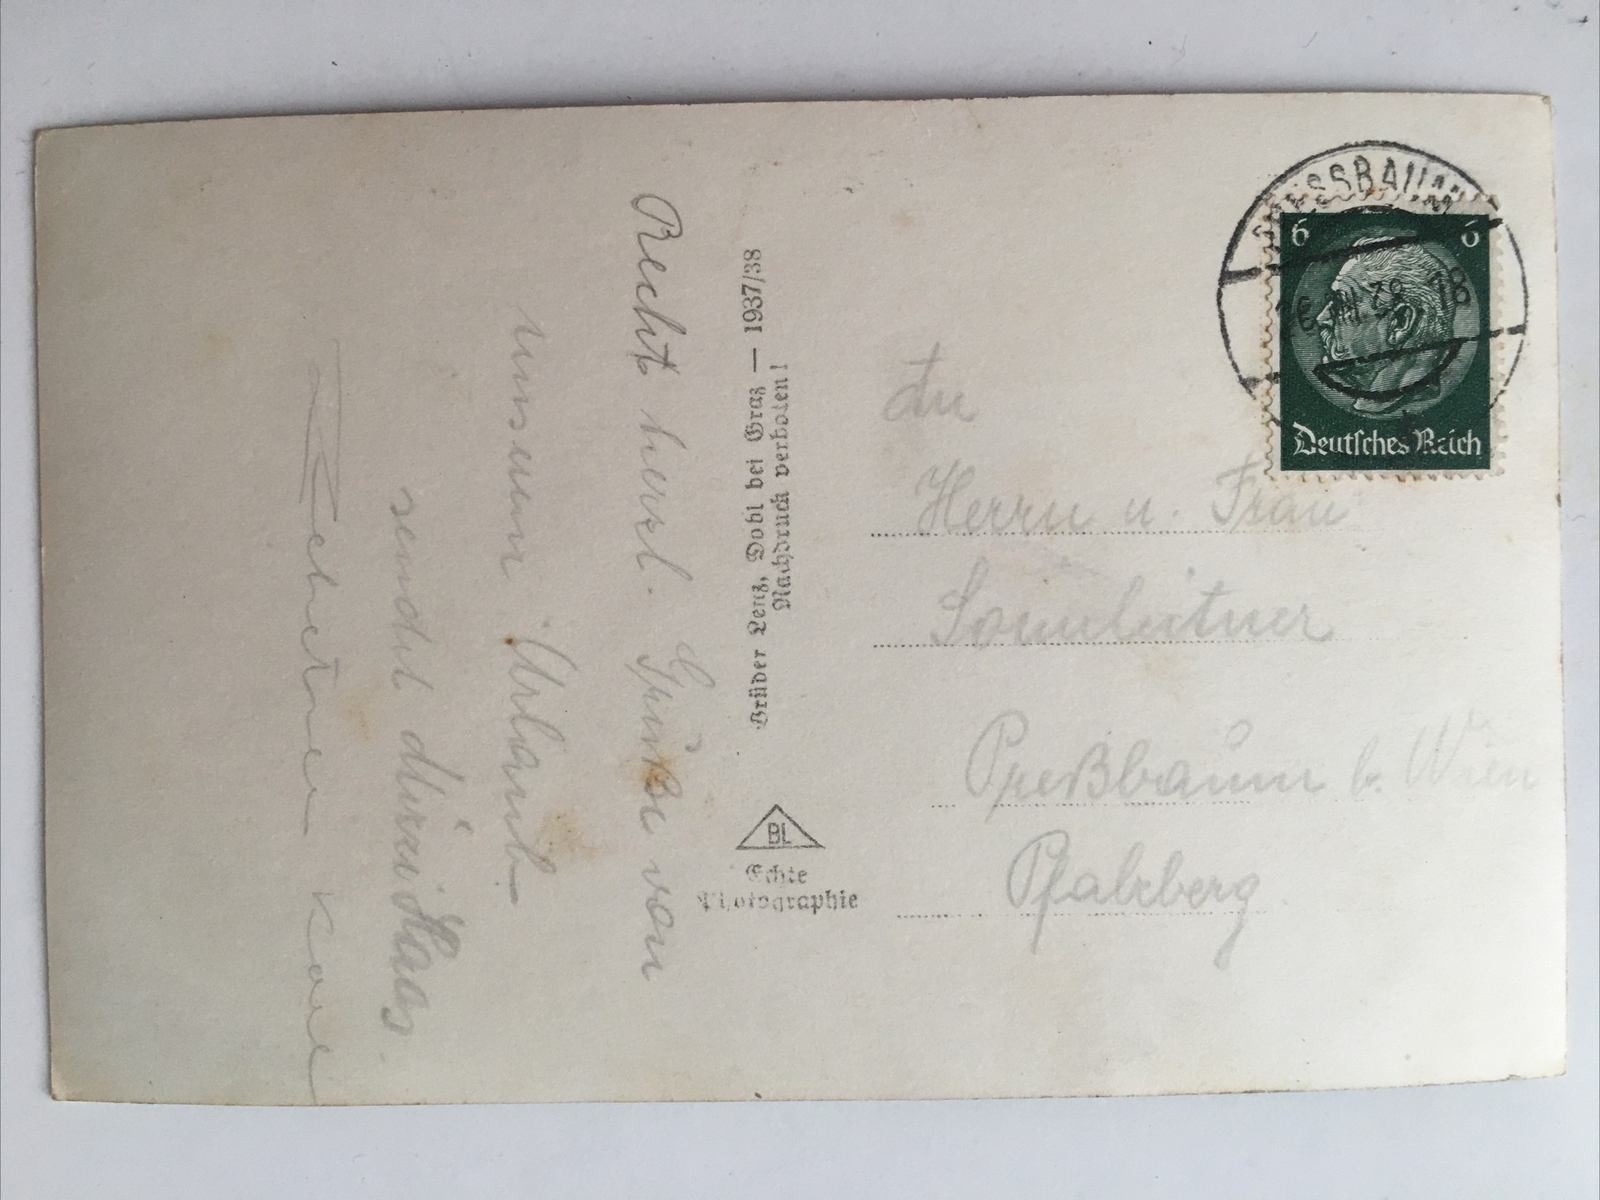 Recht herzl. Grüße von
unserem Urlaub
sendet
Karl
Brüder Lenz, Dobl bei Graz — 1937/38
Nachdruck verboten!
BL
Echte
Photographie
PRESSBAUM
18
6 6
Deutsches Reich
An
Herrn u. Frau
Sonnleitner
Preßbaum b. Wien
Pfalzberg